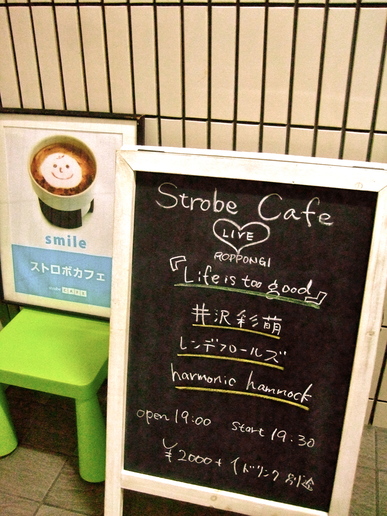 smile
ストロボカフェ
Strobe Cafe
LIVE
ROPPONGI
『Life is too good』
井沢彩萌
レンデフロールズ
harmonic hammock
open 19:00 start 19:30
¥2000+1ドリンク別途